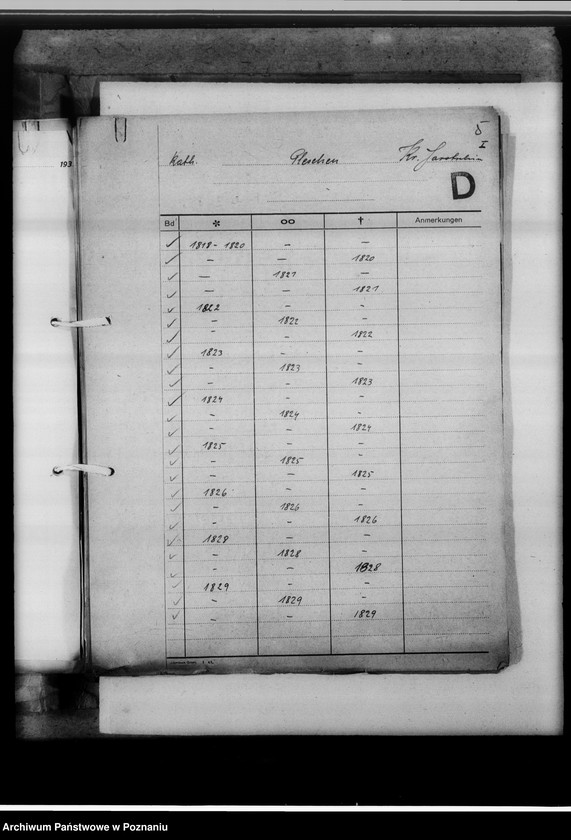 5
I
193
Kath. Pleschen Kr. Jarotschin
D
Bd * ∞ † Anmerkungen
✓ 1818 - 1820 – –
✓ – – 1820
✓ – 1821 –
✓ – – 1821
✓ 1822 – –
✓ – 1822 –
✓ – – 1822
✓ 1823 – –
✓ – 1823 –
✓ – – 1823
✓ 1824 – –
✓ – 1824 –
✓ – – 1824
✓ 1825 – –
✓ – 1825 –
✓ – – 1825
✓ 1826 – –
✓ – 1826 –
✓ – – 1826
✓ 1828 – –
✓ – 1828 –
✓ – – 1828
✓ 1829 – –
✓ – 1829 –
✓ – – 1829
Archiwum Państwowe w Poznaniu